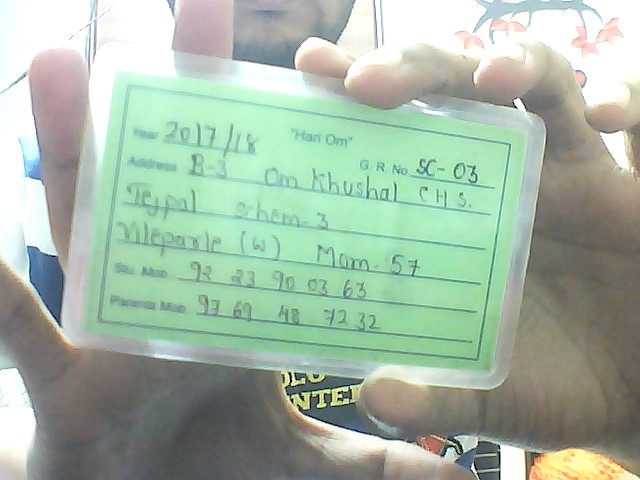 "Hari Om"
Year 2017/18
G R No SC-03
Address B-3 Om Khushal C H S.
Tejpal schem-3
Vileparle (W) Mam-57
Stu. Mob. 92 23 90 03 63
Parents Mob 97 69 48 72 32